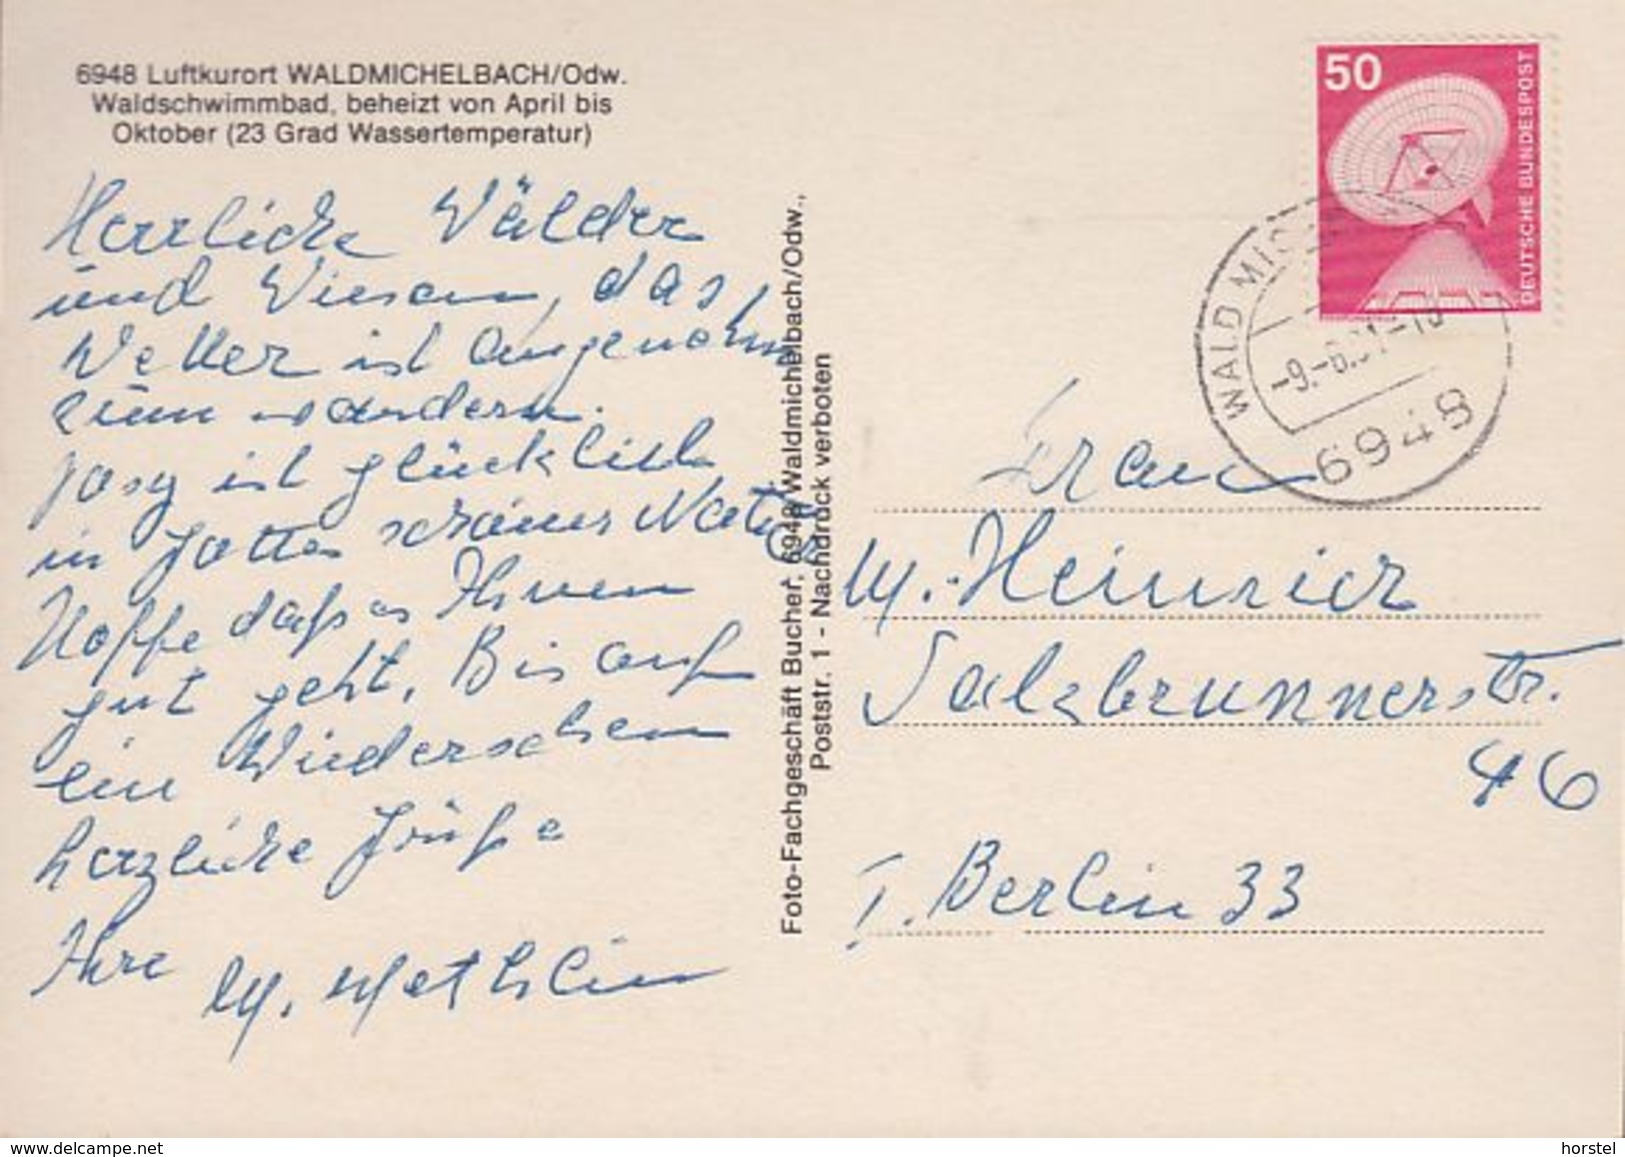 6948 Luftkurort WALDMICHELBACH/Odw.
Waldschwimmbad, beheizt von April bis
Oktober (23 Grad Wassertemperatur)
Herrliche Wälder
und Wiesen, das
Wetter ist angenehm
zum wandern.
ist glücklich
in Gottes schöner Natur
Hoffe daß es Ihnen
gut geht, Bis auf
ein Wiedersehen
herzliche Grüße
Ihre M.
Foto-Fachgeschäft Bucher, 6948 Waldmichelbach/Odw.,
Poststr. 1 - Nachdruck verboten
50
DEUTSCHE BUNDESPOST
WALD MIC
-9.-6.81-
6948
Frau
M. Heinrich
Salzbrunnerstr.
46
I. Berlin 33
delcampe.net
horstel